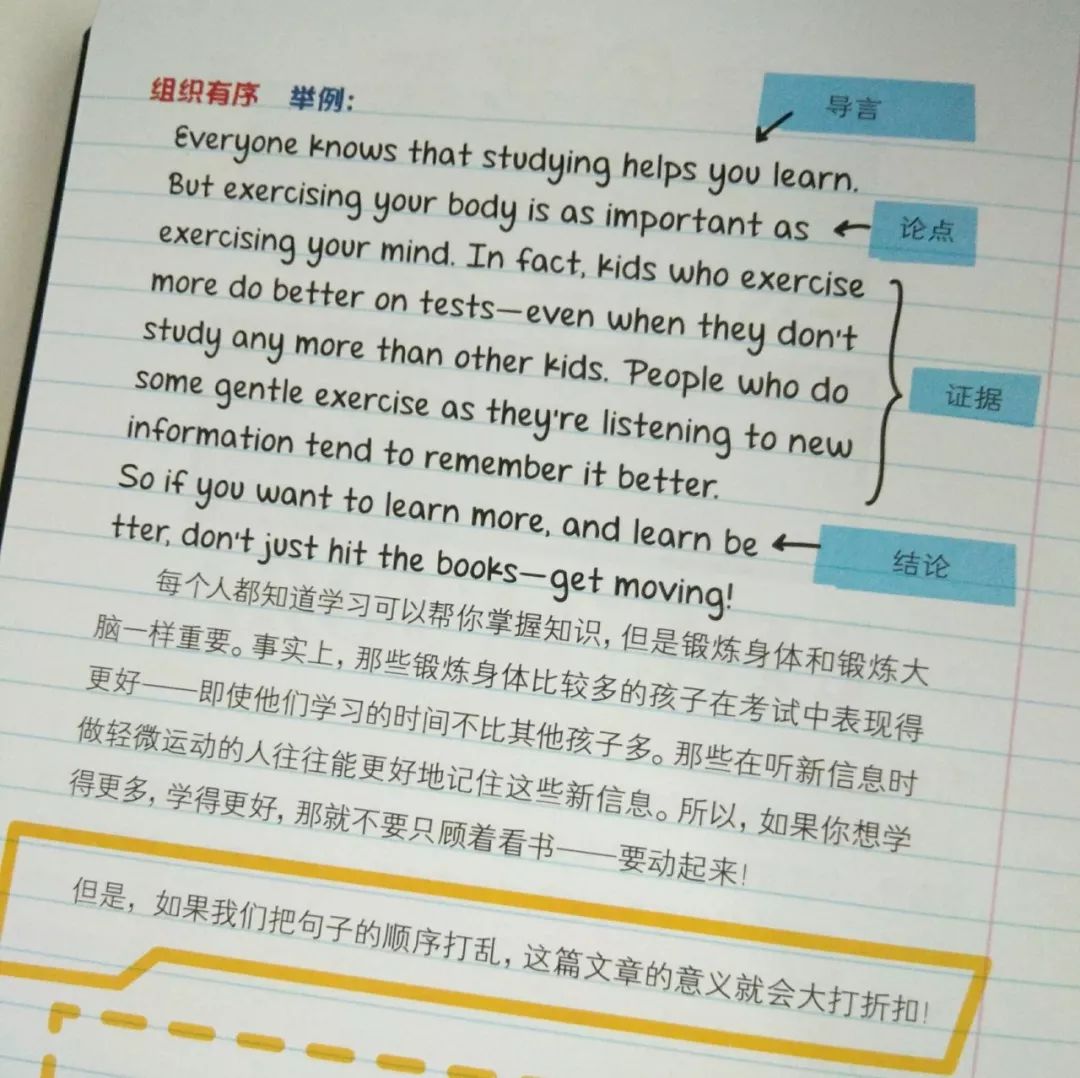 组织有序 举例：
导言
Everyone knows that studying helps you learn.
But exercising your body is as important as
论点
exercising your mind. In fact, kids who exercise
more do better on tests—even when they don't
study any more than other kids. People who do
证据
some gentle exercise as they're listening to new
information tend to remember it better.
So if you want to learn more, and learn be
结论
tter, don't just hit the books—get moving!
每个人都知道学习可以帮你掌握知识，但是锻炼身体和锻炼大
脑一样重要。事实上，那些锻炼身体比较多的孩子在考试中表现得
更好——即使他们学习的时间不比其他孩子多。那些在听新信息时
做轻微运动的人往往能更好地记住这些新信息。所以，如果你想学
得更多，学得更好，那就不要只顾着看书——要动起来！
但是，如果我们把句子的顺序打乱，这篇文章的意义就会大打折扣！